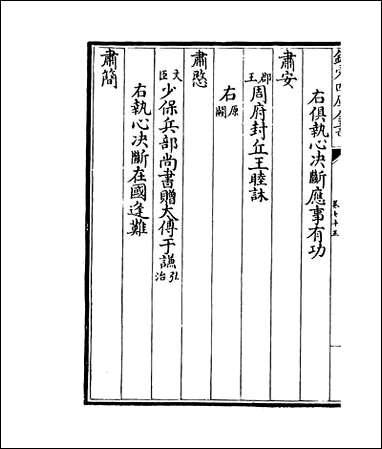 右俱執心決斷應事有功
肅安
郡王周府封丘王睦𣗳
右原闕
肅愍
文臣少保兵部尚書贈太傅于謙弘治
右執心決斷在國逢難
肅簡